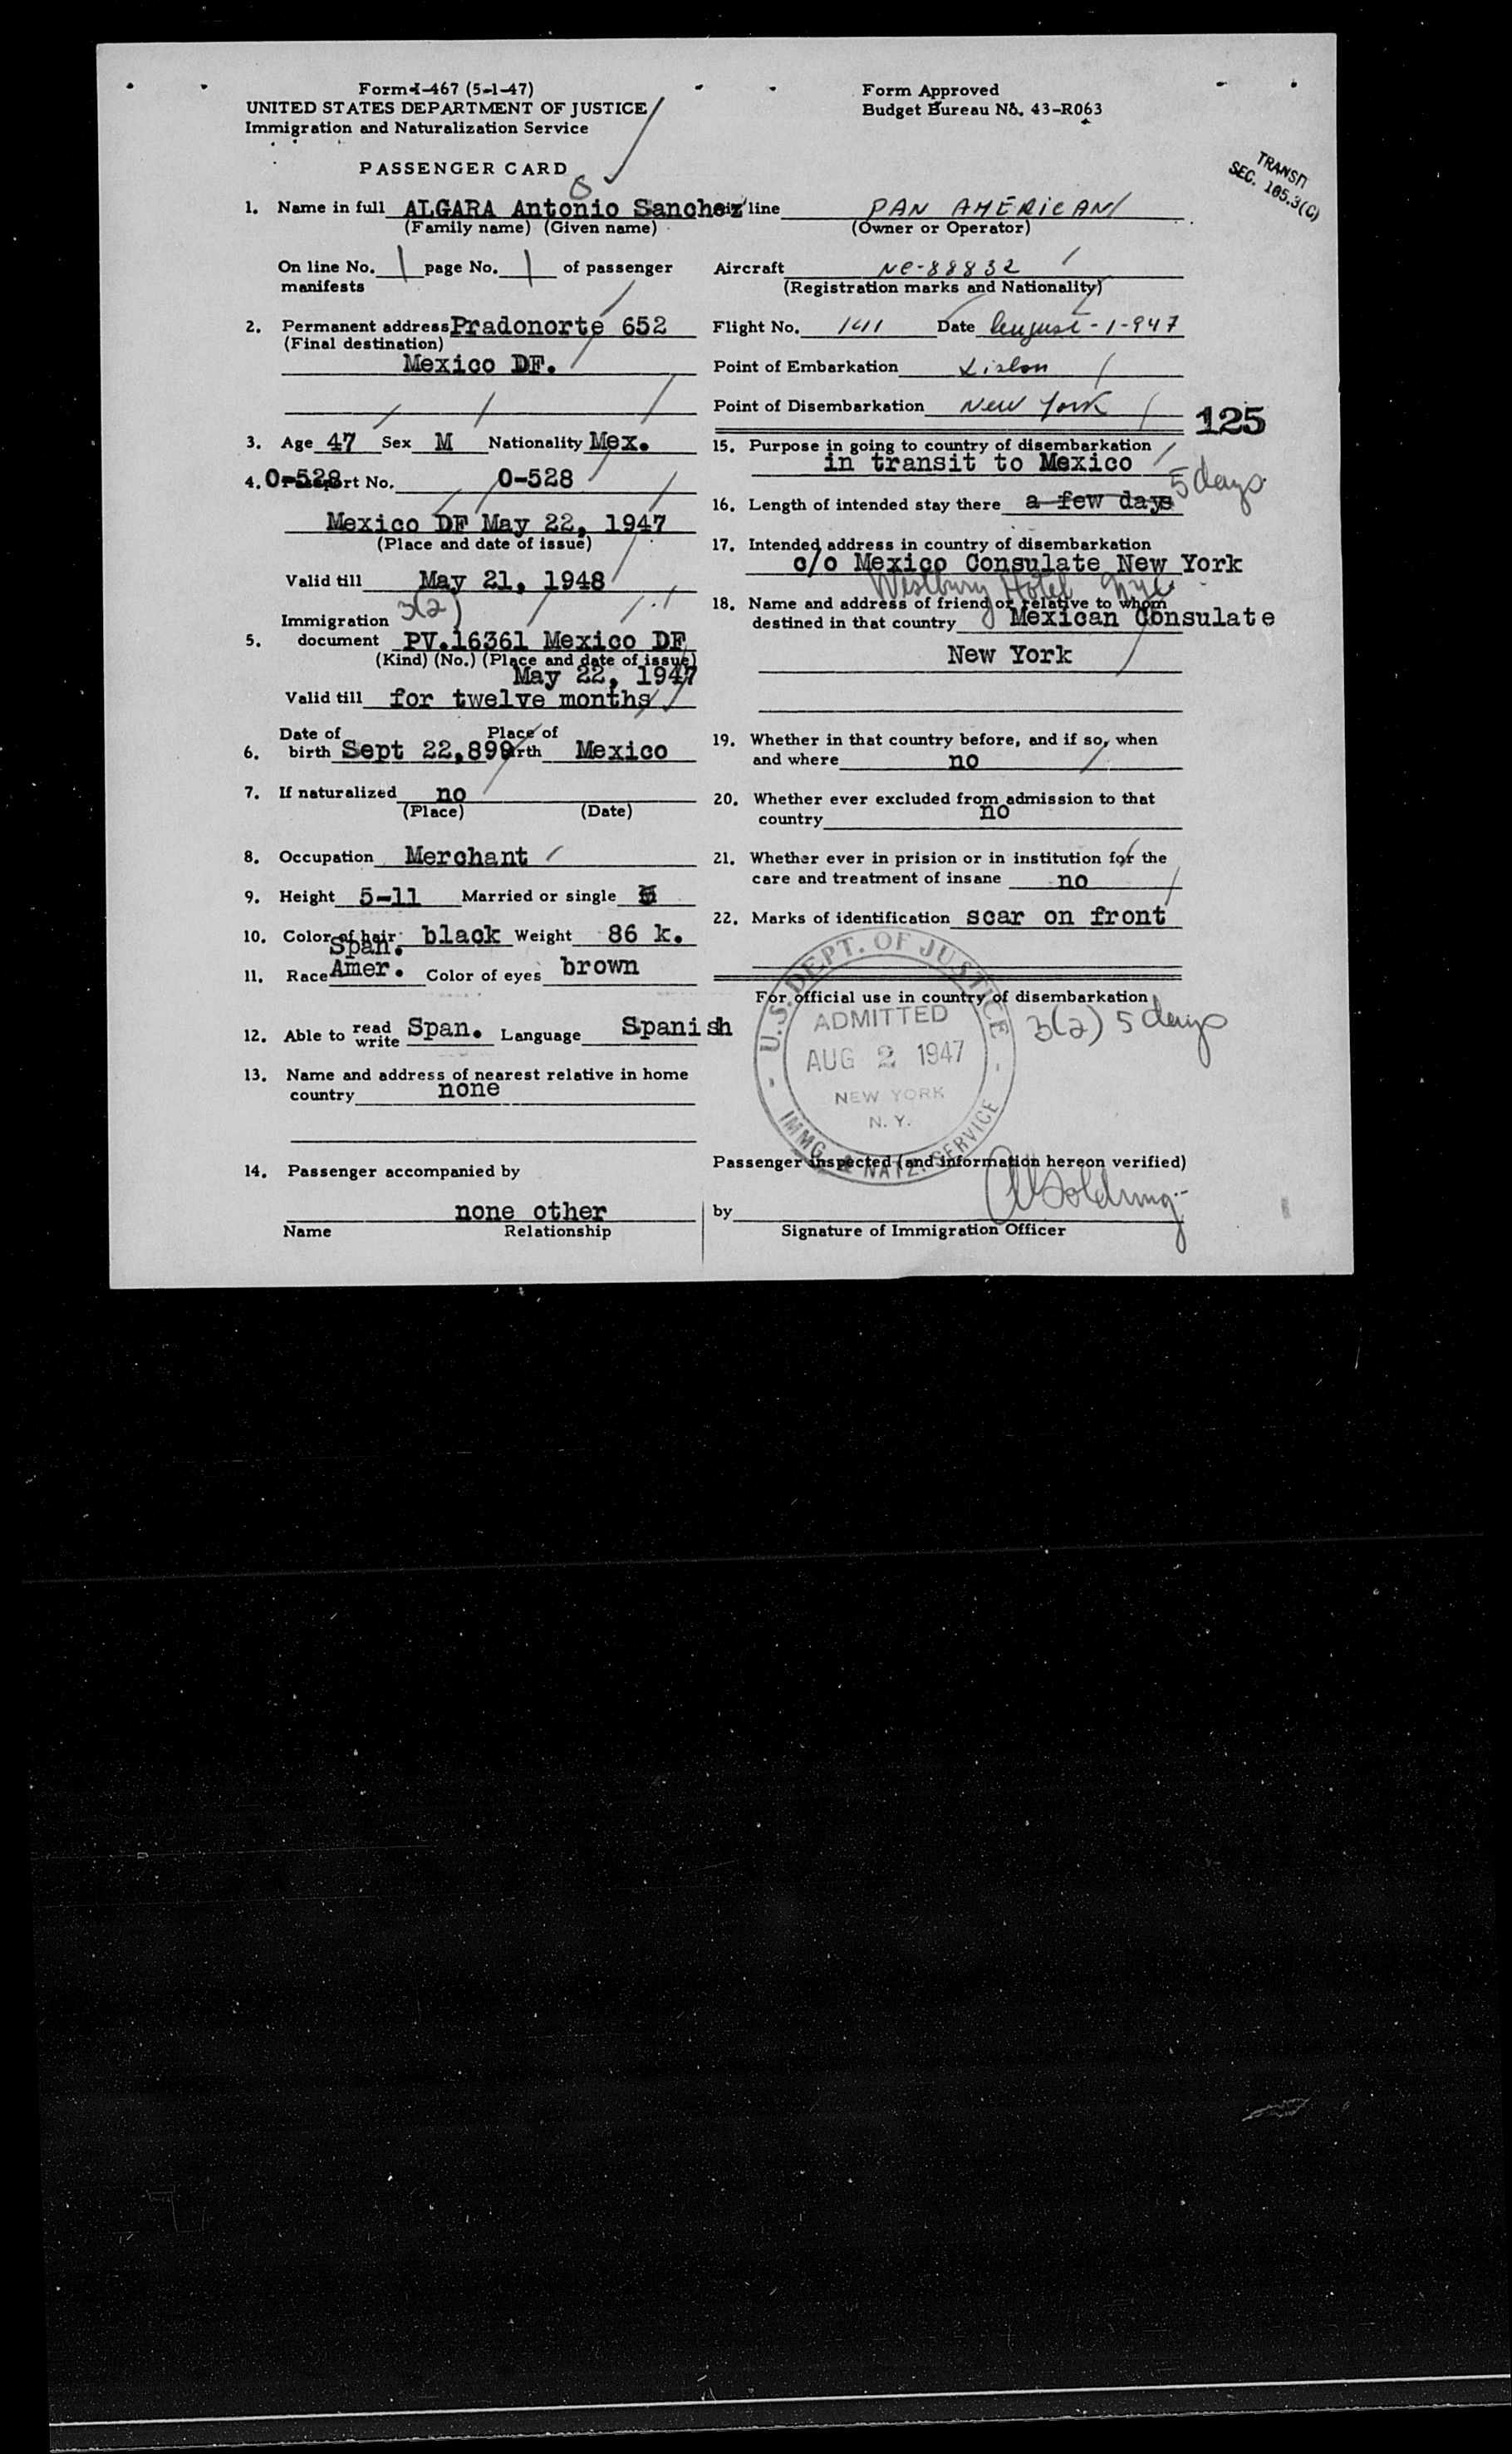 Form I-467 (5-1-47)
UNITED STATES DEPARTMENT OF JUSTICE
Immigration and Naturalization Service
PASSENGER CARD
Form Approved
Budget Bureau No. 43-R063
TRANSIT
SEC. 105.3(C)
1. Name in full ALGARA Antonio Sanchez
(Family name) (Given name)
On line No. 1 page No. 1 of passenger
manifests
2. Permanent address Pradonorte 652
(Final destination)
Mexico DF.
3. Age 47 Sex M Nationality Mex.
4. 0-528 Passport No. 0-528
Mexico DF May 22, 1947
(Place and date of issue)
Valid till May 21, 1948
3(2)
Immigration
5. document PV.16361 Mexico DF
(Kind) (No.) (Place and date of issue)
May 22, 1947
Valid till for twelve months
Date of Place of
6. birth Sept 22,899 birth Mexico
7. If naturalized no
(Place) (Date)
8. Occupation Merchant
9. Height 5-11 Married or single
10. Color of hair black Weight 86 k.
Span.
11. Race Amer. Color of eyes brown
12. Able to read write Span. Language Spanish
13. Name and address of nearest relative in home
country none
14. Passenger accompanied by
none other
Name Relationship
Air line PAN AMERICAN
(Owner or Operator)
Aircraft NC-88832
(Registration marks and Nationality)
Flight No. Date August-1-947
Point of Embarkation Lisbon
Point of Disembarkation New York
125
15. Purpose in going to country of disembarkation
in transit to Mexico
5 days
16. Length of intended stay there a few days
17. Intended address in country of disembarkation
c/o Mexico Consulate New York
Westbury Hotel NYC
18. Name and address of friend or relative to whom
destined in that country Mexican Consulate
New York
19. Whether in that country before, and if so, when
and where no
20. Whether ever excluded from admission to that
country no
21. Whether ever in prision or in institution for the
care and treatment of insane no
22. Marks of identification scar on front
For official use in country of disembarkation
3(2) 5 days
U.S. DEPT. OF JUSTICE
ADMITTED
AUG 2 1947
NEW YORK
N. Y.
IMMG. & NATZ. SERVICE
Passenger inspected (and information hereon verified)
by
Signature of Immigration Officer